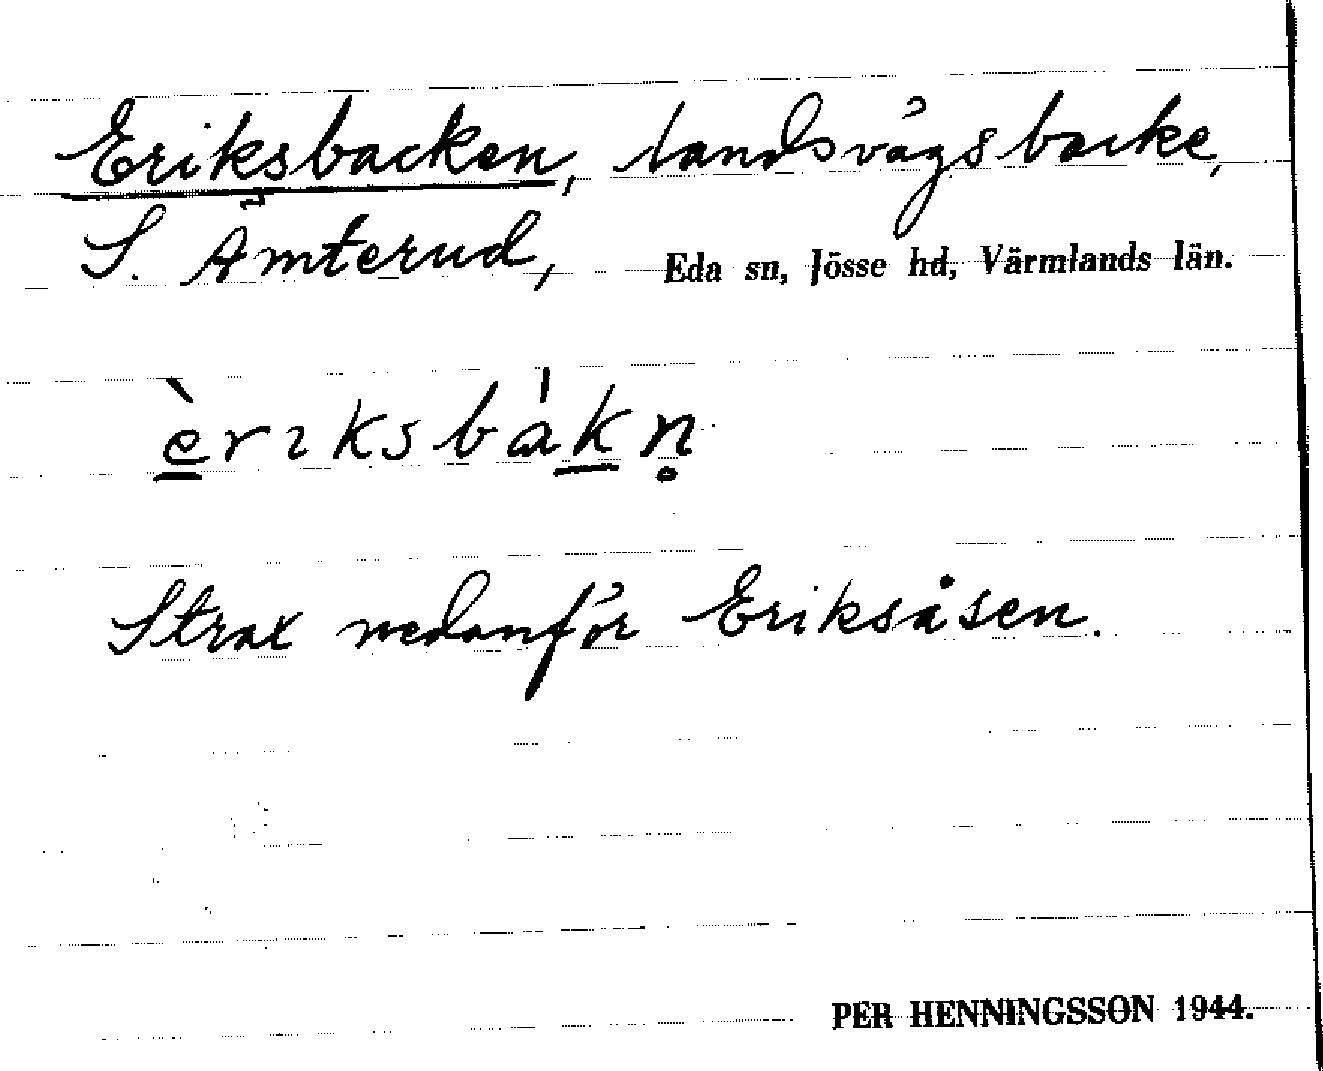 Eriksbacken, landsvägsbacke,
S. Ämterud, Eda sn, Jösse hd, Värmlands län.
èrıksbàkn̥
Strax nedanför Eriksåsen.
PER HENNINGSSON 1944.